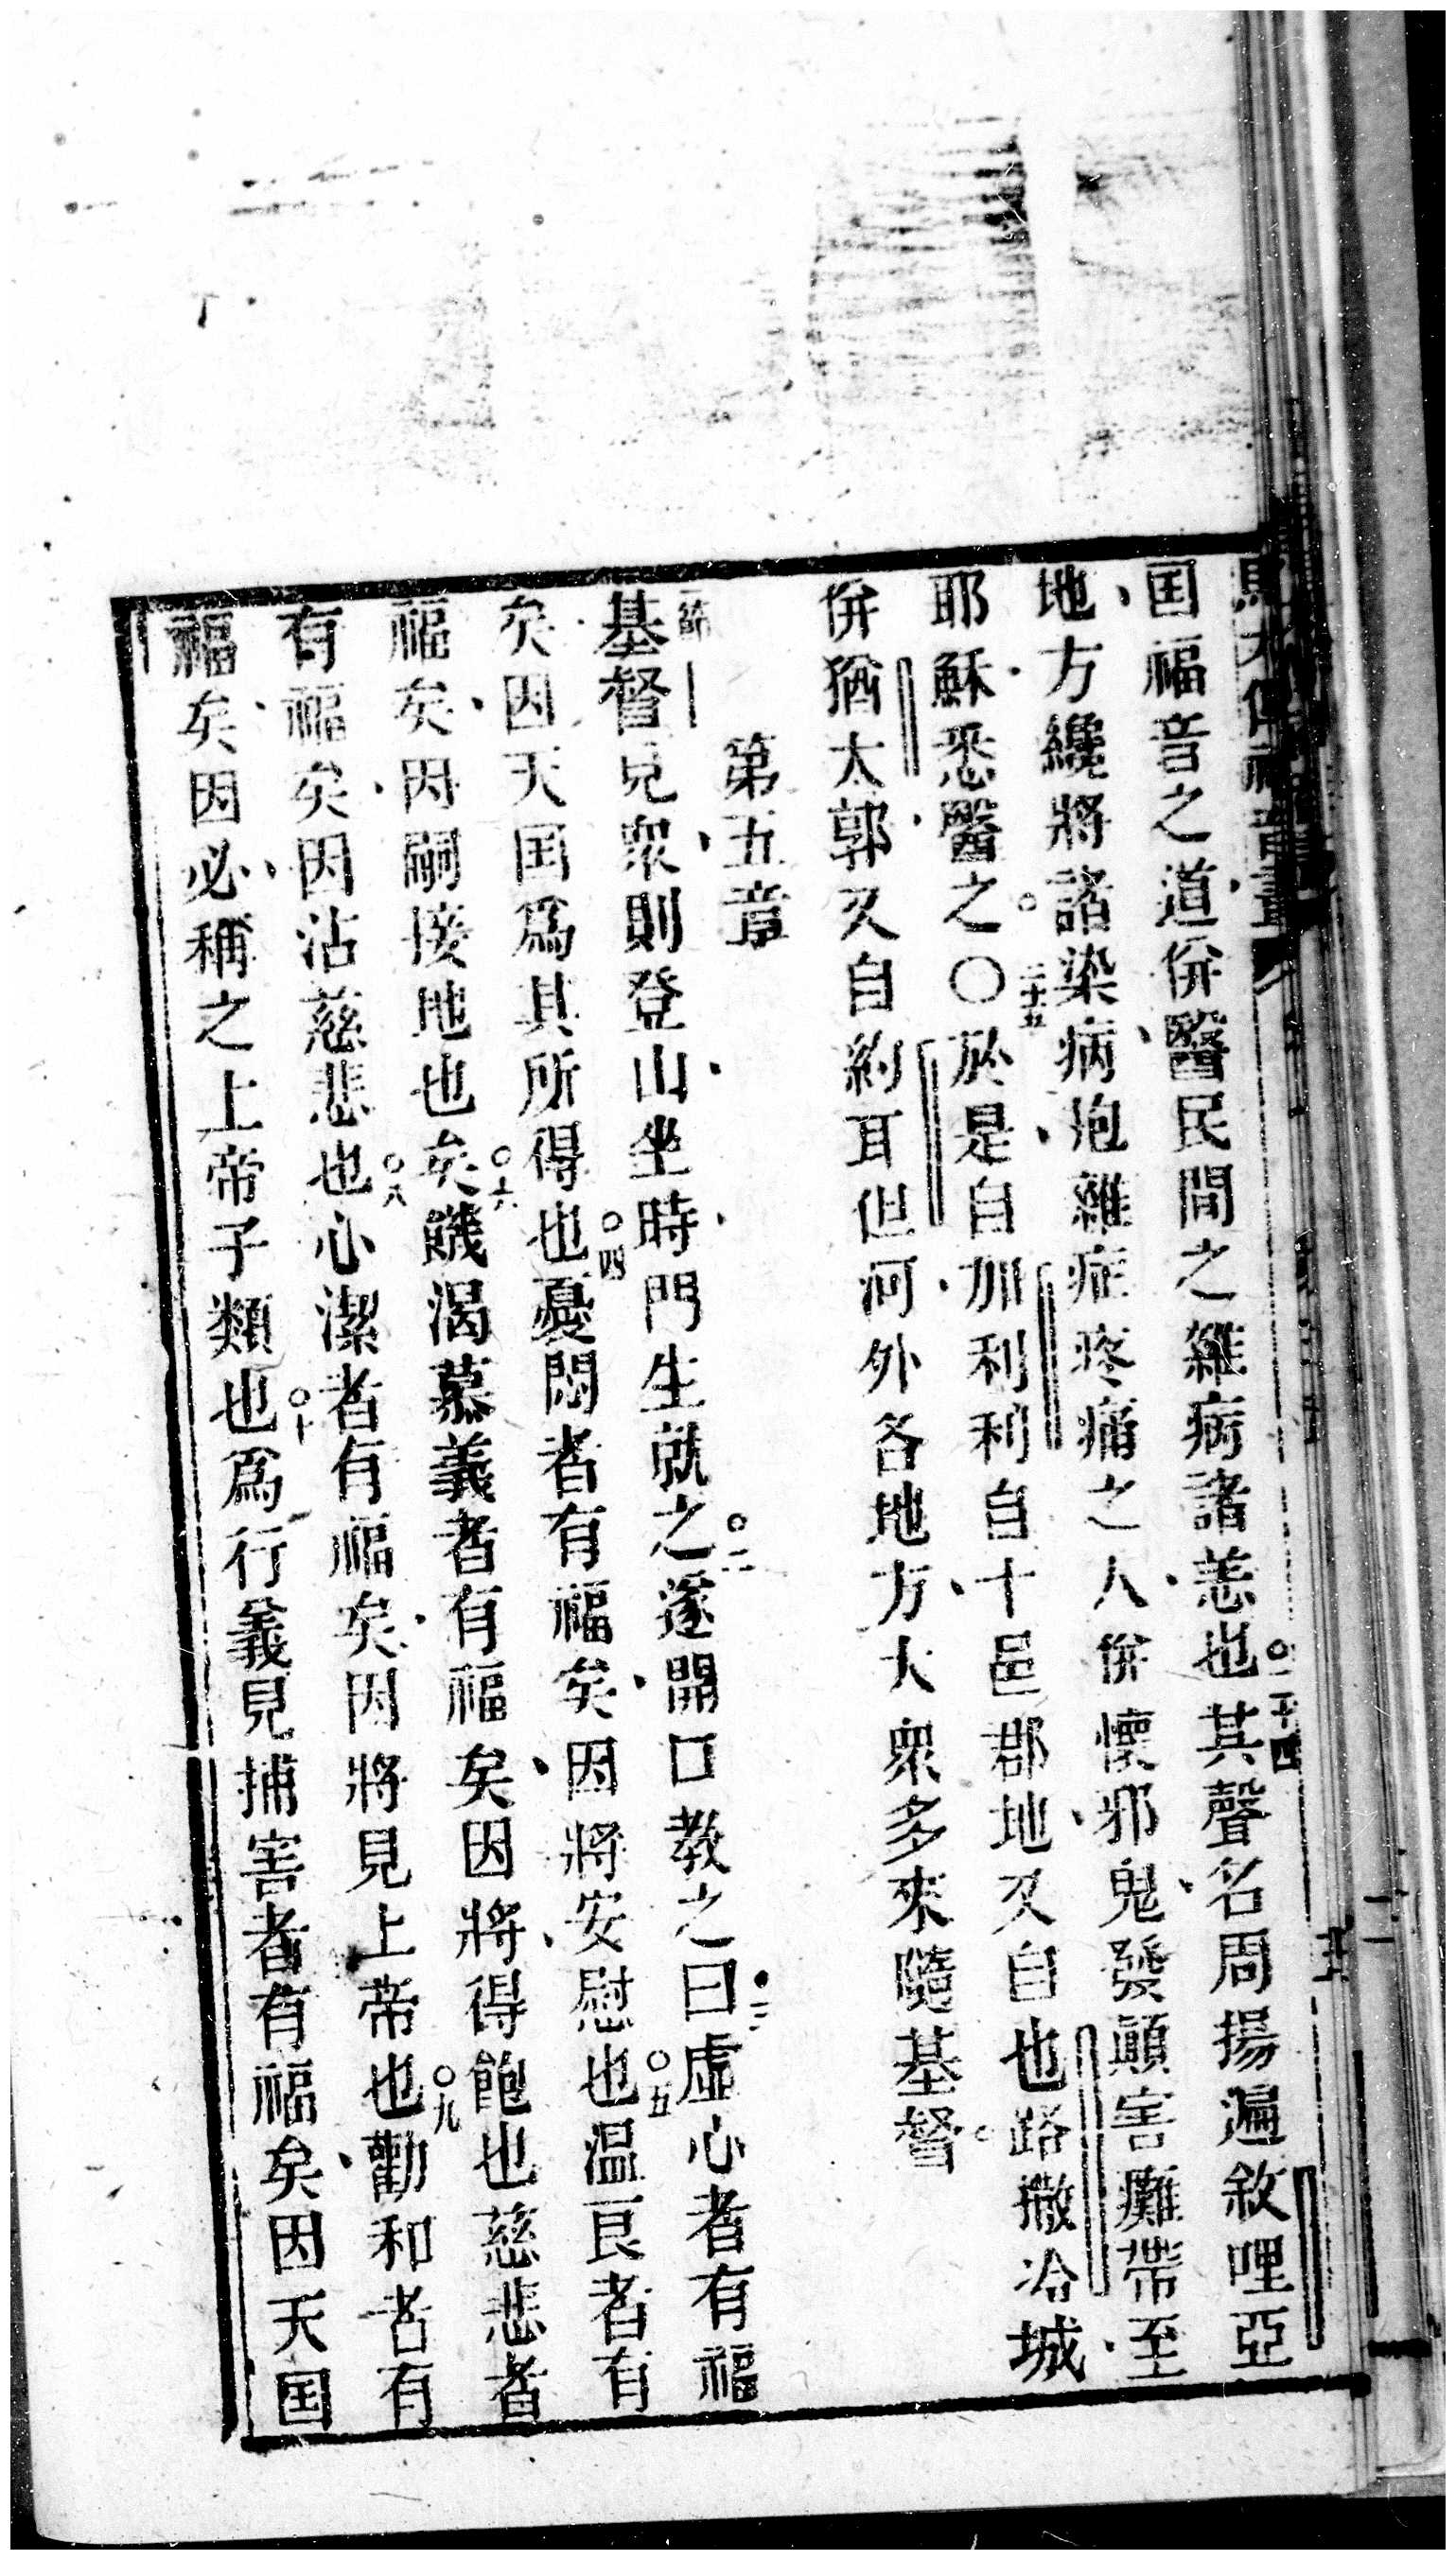 囯福音之道、併醫民間之雜病諸恙也○二十四其聲名周揚遍敘哩亞
地方、纔將諸染病、疱雜症疼痛之人、併懷邪鬼、發顚害癱帶至
耶穌、悉醫之。○二十五於是、自加利利自十邑郡地、又自也路撒冷城、
併猶太郭、又自約耳但河外各地方、大衆多來隨基督。
第五章
一節基督見衆、則登山、坐時、門生就之○二遂開口教之曰三虛心者有福
矣、因天囯爲其所得也○四憂悶者有福矣、因將安慰也○五温良者有
福矣、因嗣接地也矣○六饑渴慕義者有福矣、因將得飽也慈悲者
有福矣、因沾慈悲也○八心潔者有福矣、因將見上帝也○九勸和者有
福矣、因必稱之上帝子類也○十爲行義見捕害者有福矣、因天囯